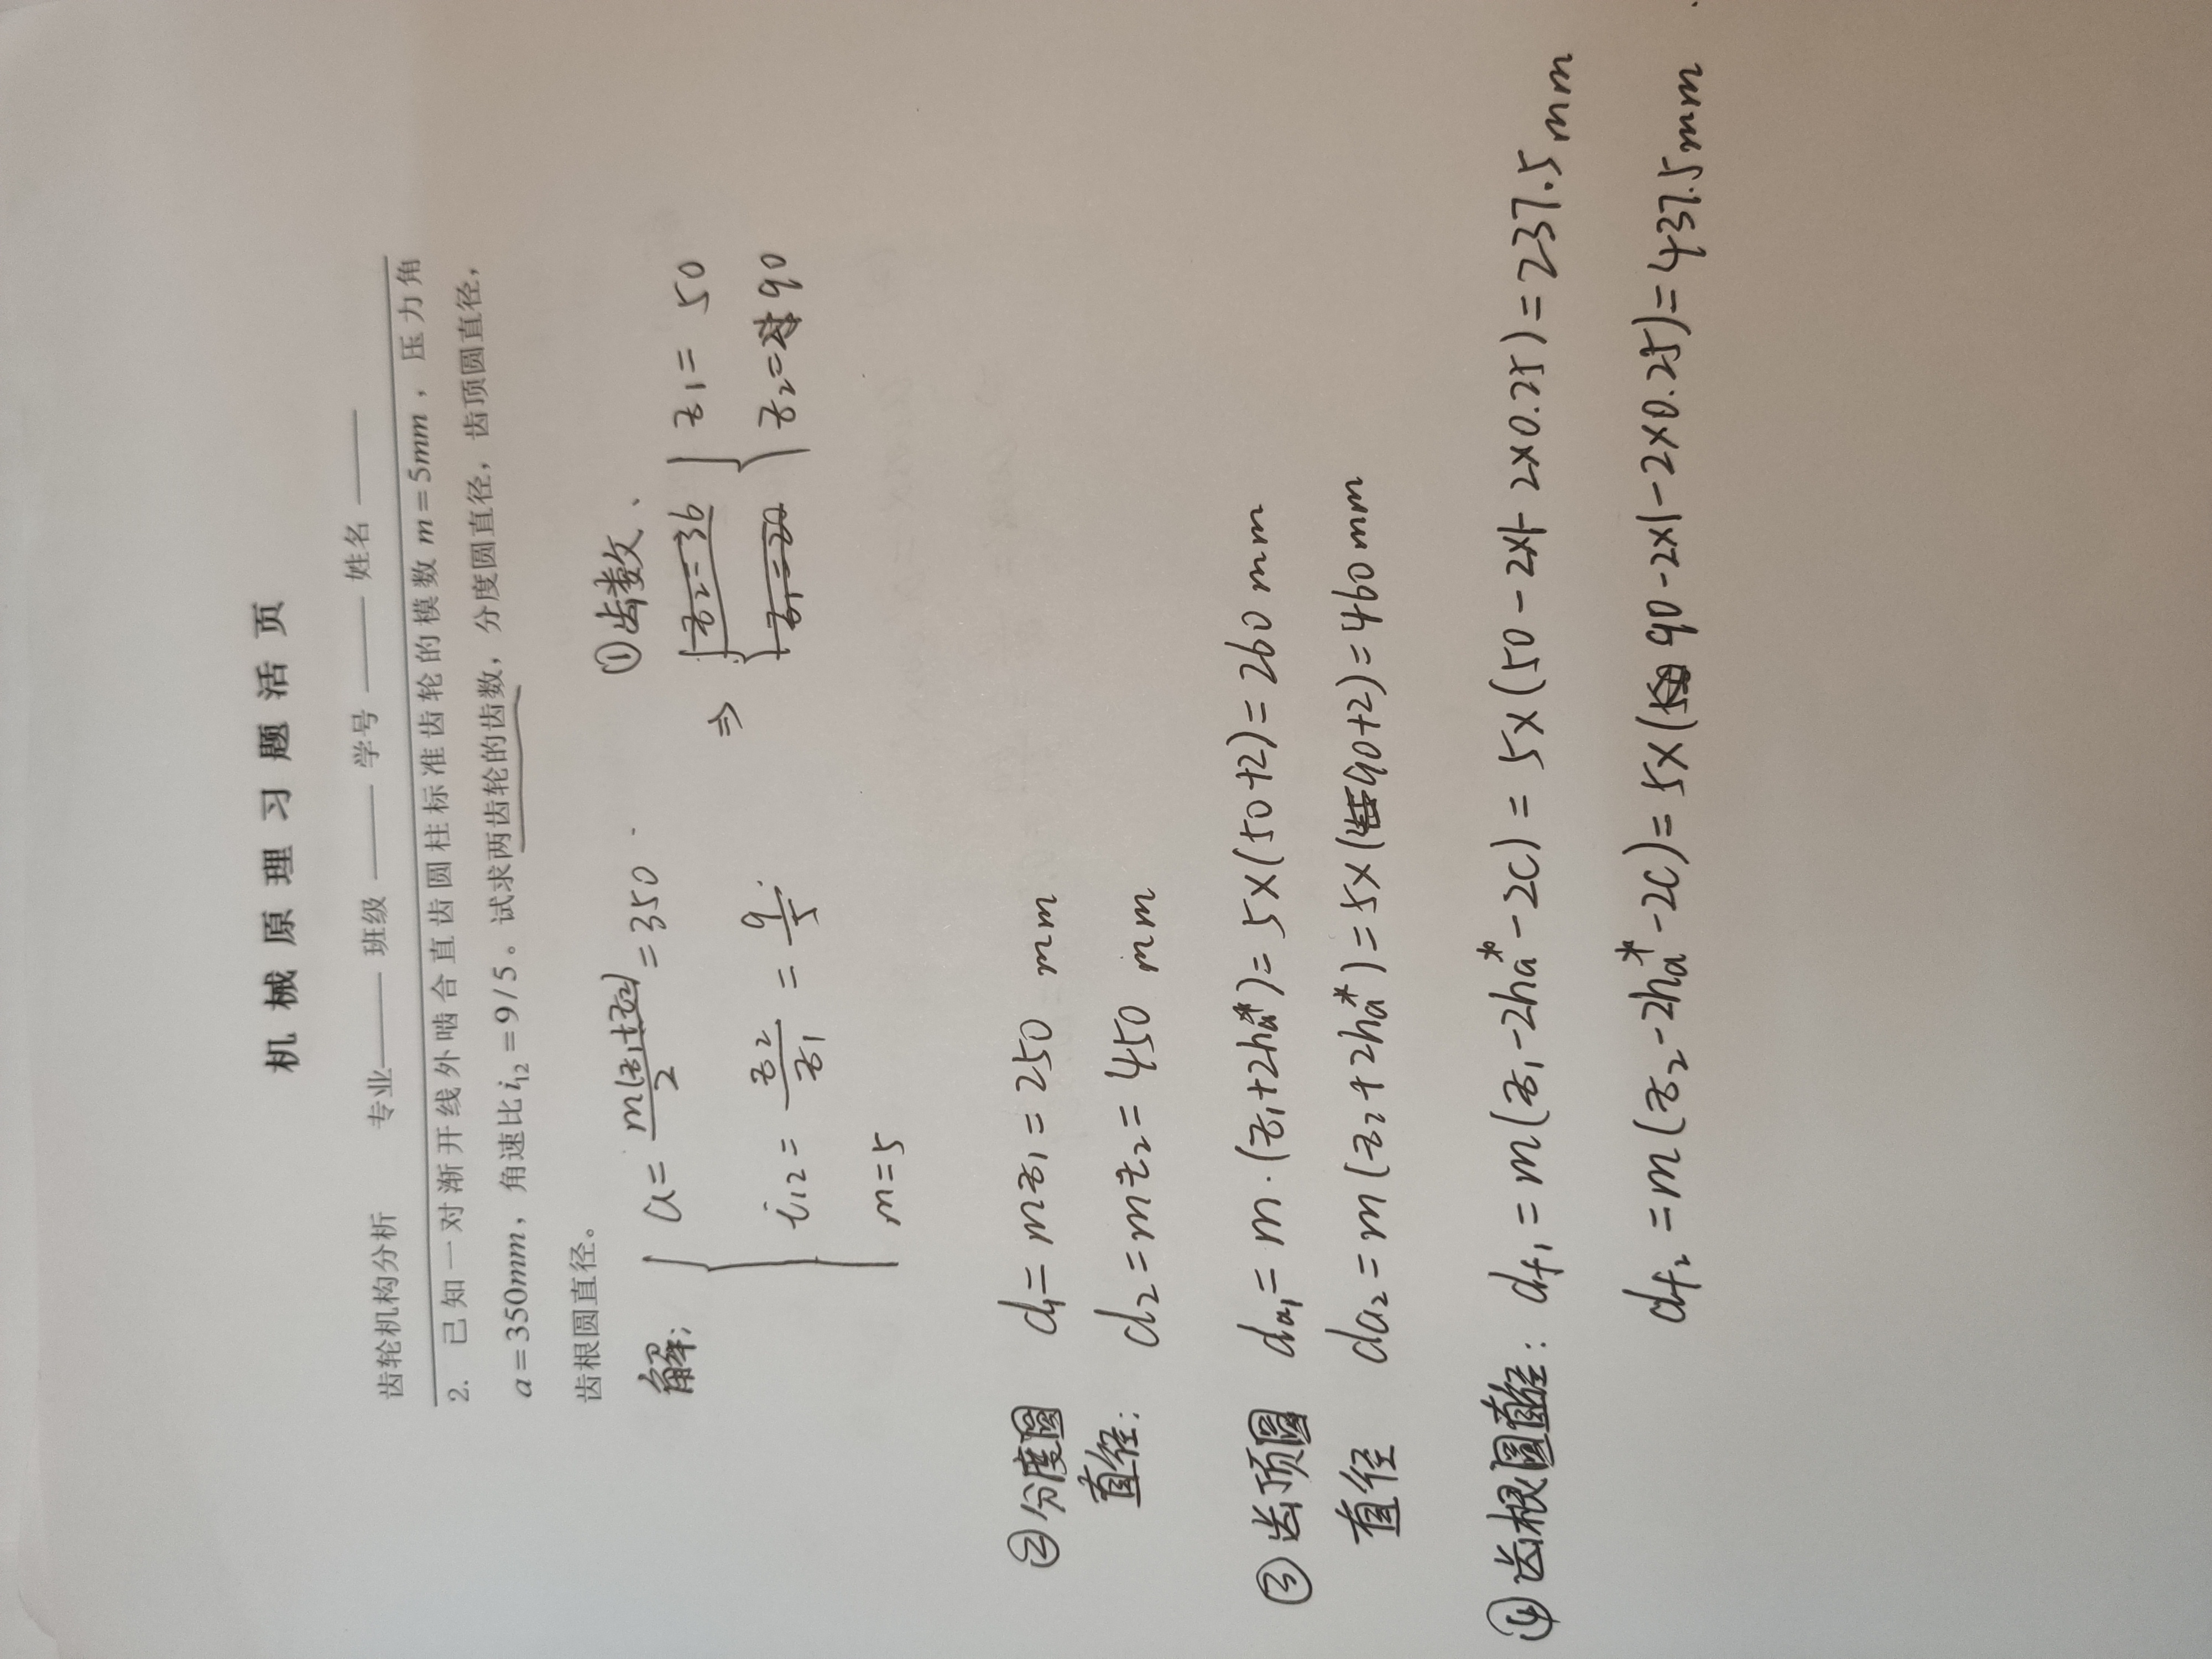 机械原理习题活页
齿轮机构分析 专业 班级 学号 姓名
2. 已知一对渐开线外啮合直齿圆柱标准齿轮的模数 m=5mm，压力角
a=350mm，角速比 i₁₂=9/5。试求两齿轮的齿数，分度圆直径，齿顶圆直径，
齿根圆直径。
解: a = m(z₁+z₂)/2 = 350
i₁₂ = z₂/z₁ = 9/5
m=5
①齿数、
⇒ z₂=36 z₁= 50
z₁=20 z₂= 90
②分度圆 d₁= mz₁ = 250 mm
直径: d₂ = mz₂ = 450 mm
③齿顶圆 da₁ = m·(z₁+2ha*) = 5×(50+2) = 260 mm
直径 da₂ = m(z₂+2ha*) = 5×(90+2) = 460 mm
④齿根圆直径: df₁ = m(z₁-2ha*-2c) = 5×(50-2×1-2×0.25) = 237.5 mm
df₂ = m(z₂-2ha*-2c) = 5×(90-2×1-2×0.25) = 437.5 mm